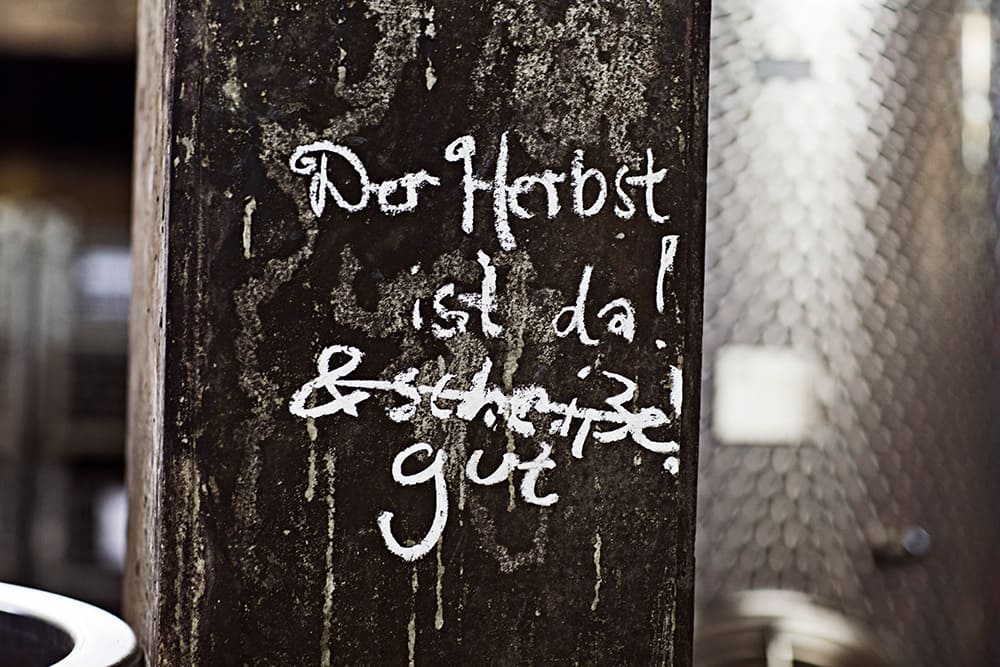 Der Herbst
ist da!
& scheiße!
gut